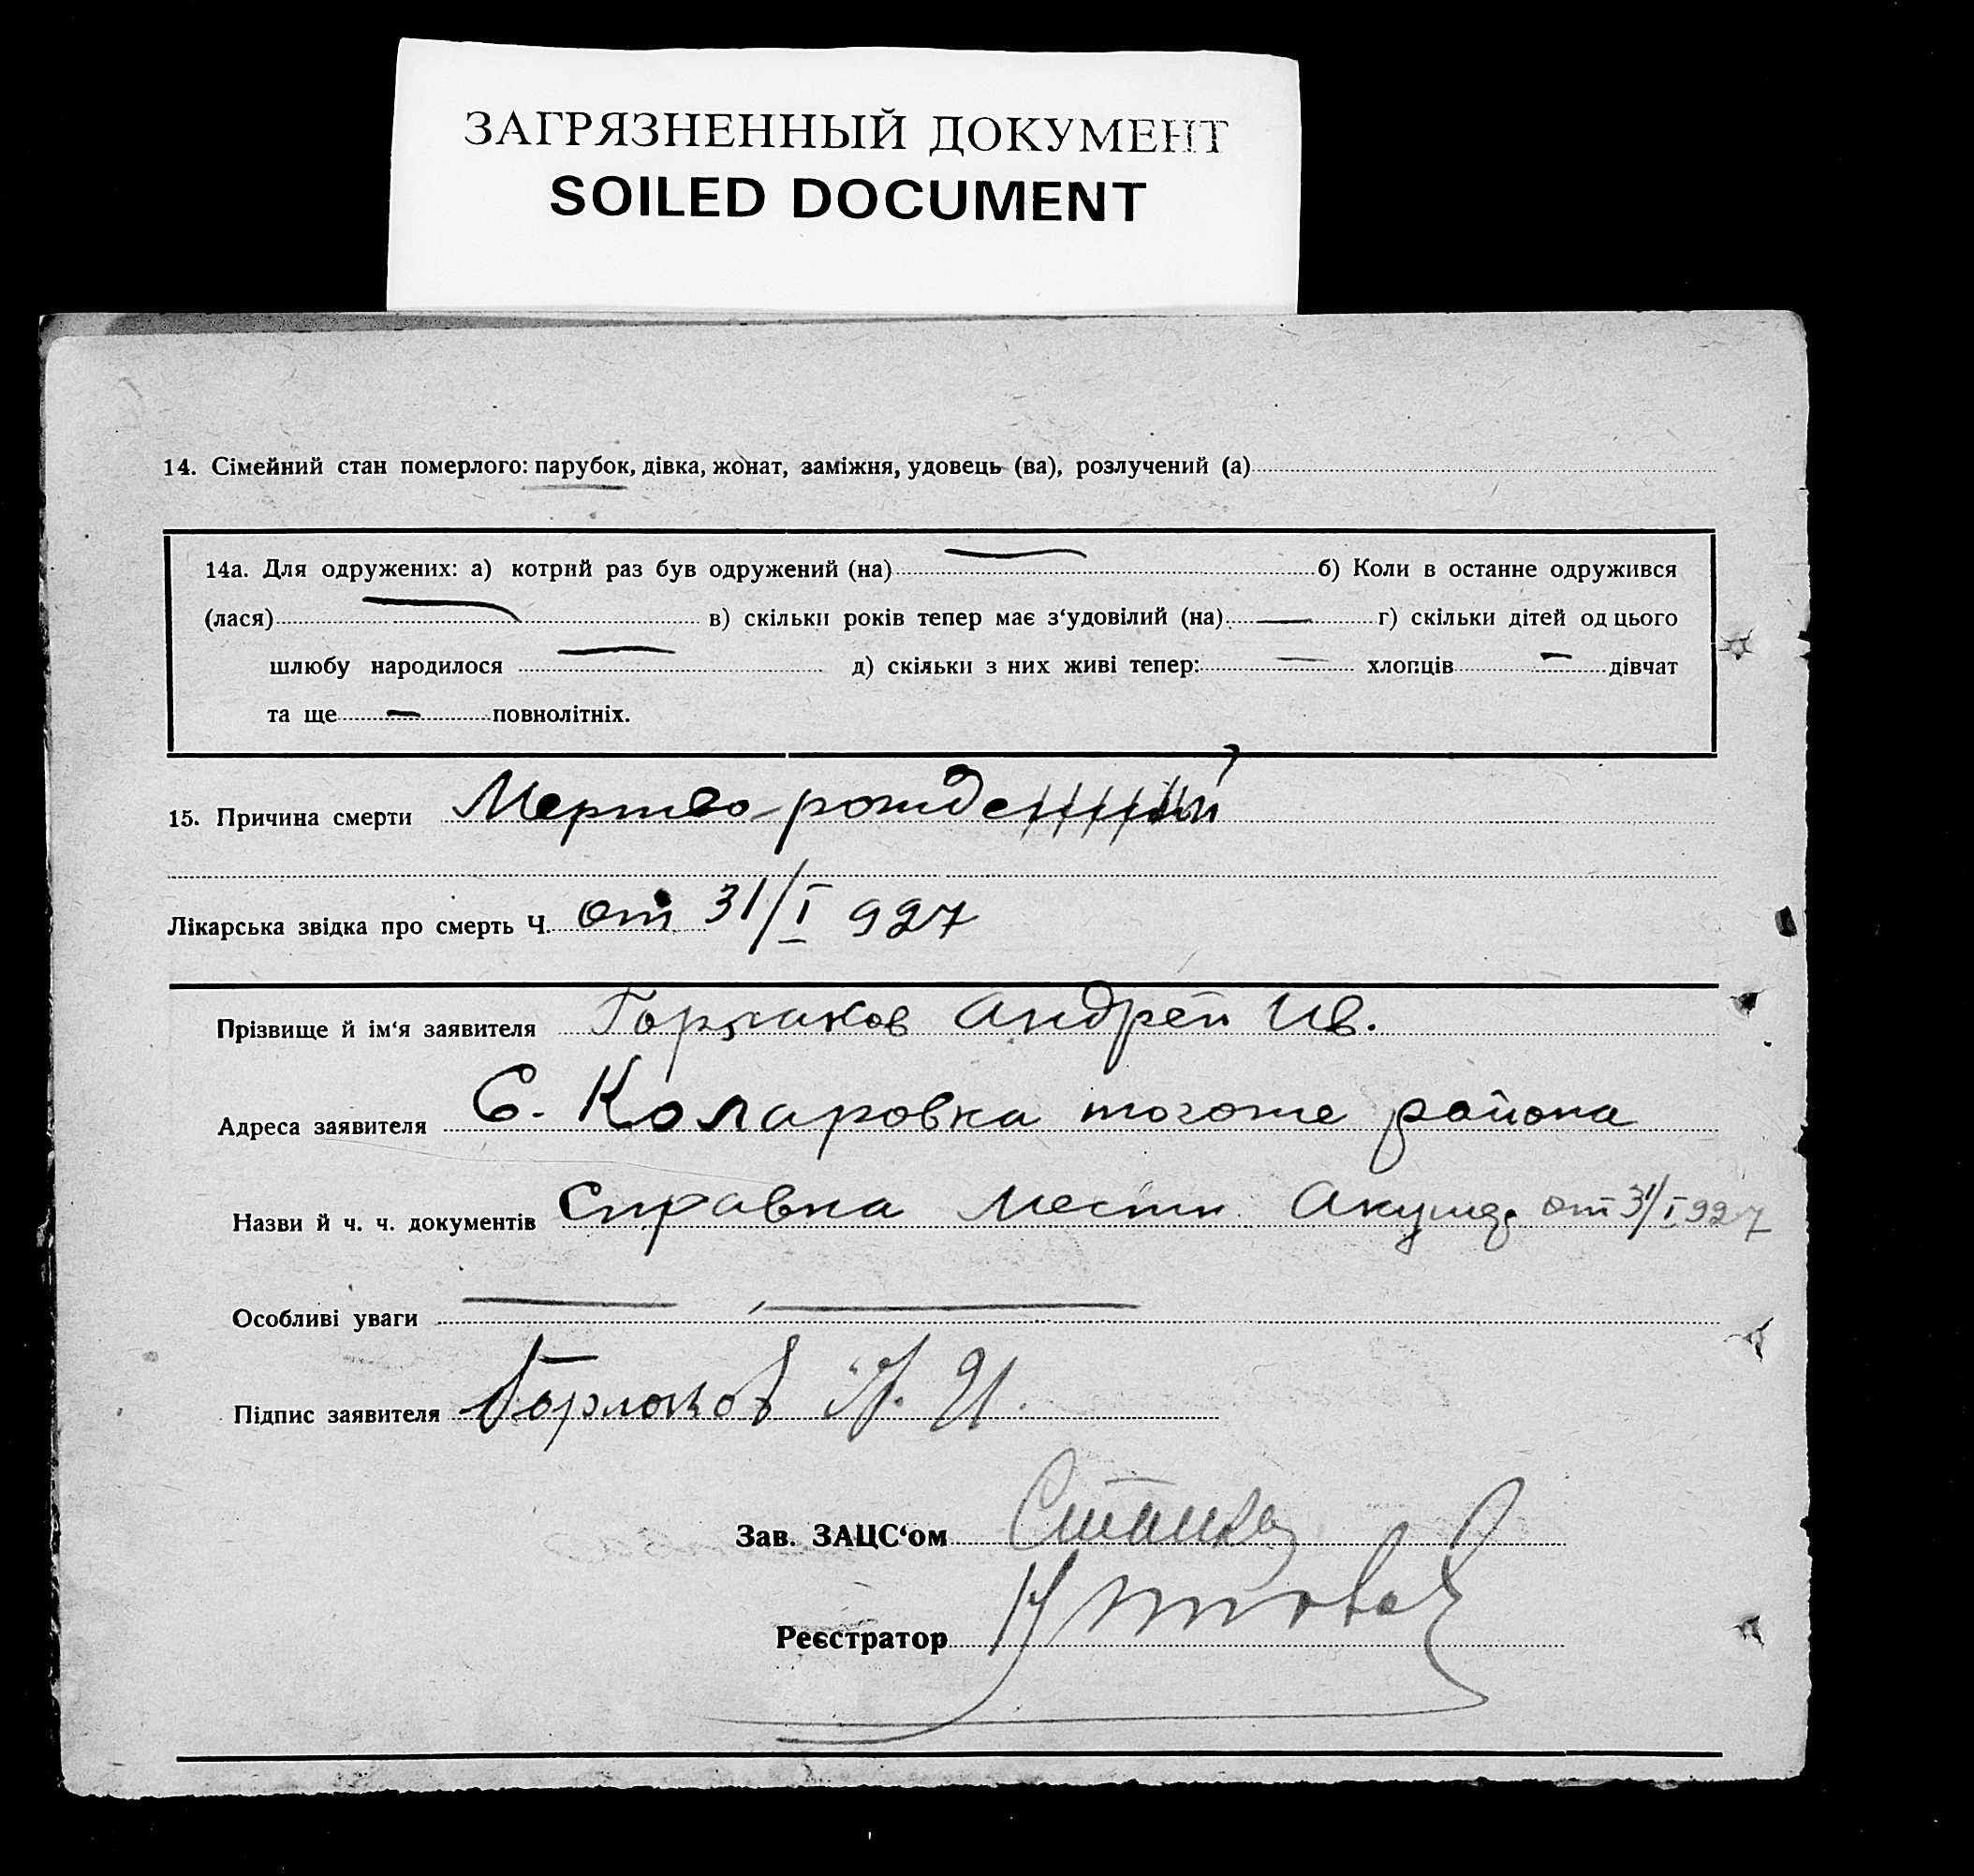 ЗАГРЯЗНЕННЫЙ ДОКУМЕНТ
SOILED DOCUMENT
14. Сімейний стан померлого: парубок, дівка, жонат, заміжня, удовець (ва), розлучений (а)
14а. Для одружених: а) котрий раз був одружений (на) — б) Коли в останне одружився
(лася) — в) скільки років тепер має з‘удовілий (на) — г) скільки дітей од цього
шлюбу народилося — д) скільки з них живі тепер: — хлопців — дівчат
та ще — повнолітніх.
15. Причина смерти Мертво-рожденный
Лікарська звідка про смерть Ч. от 31/I 927
Прізвище й ім‘я заявителя Андрей Ив.
Адреса заявителя С. Коларовка тогоже района
Назви й ч. ч. документів Справка Местн. Акуш. от 31/I 927
Особливі уваги —
Підпис заявителя И.
Зав. ЗАЦС‘ом
Реєстратор